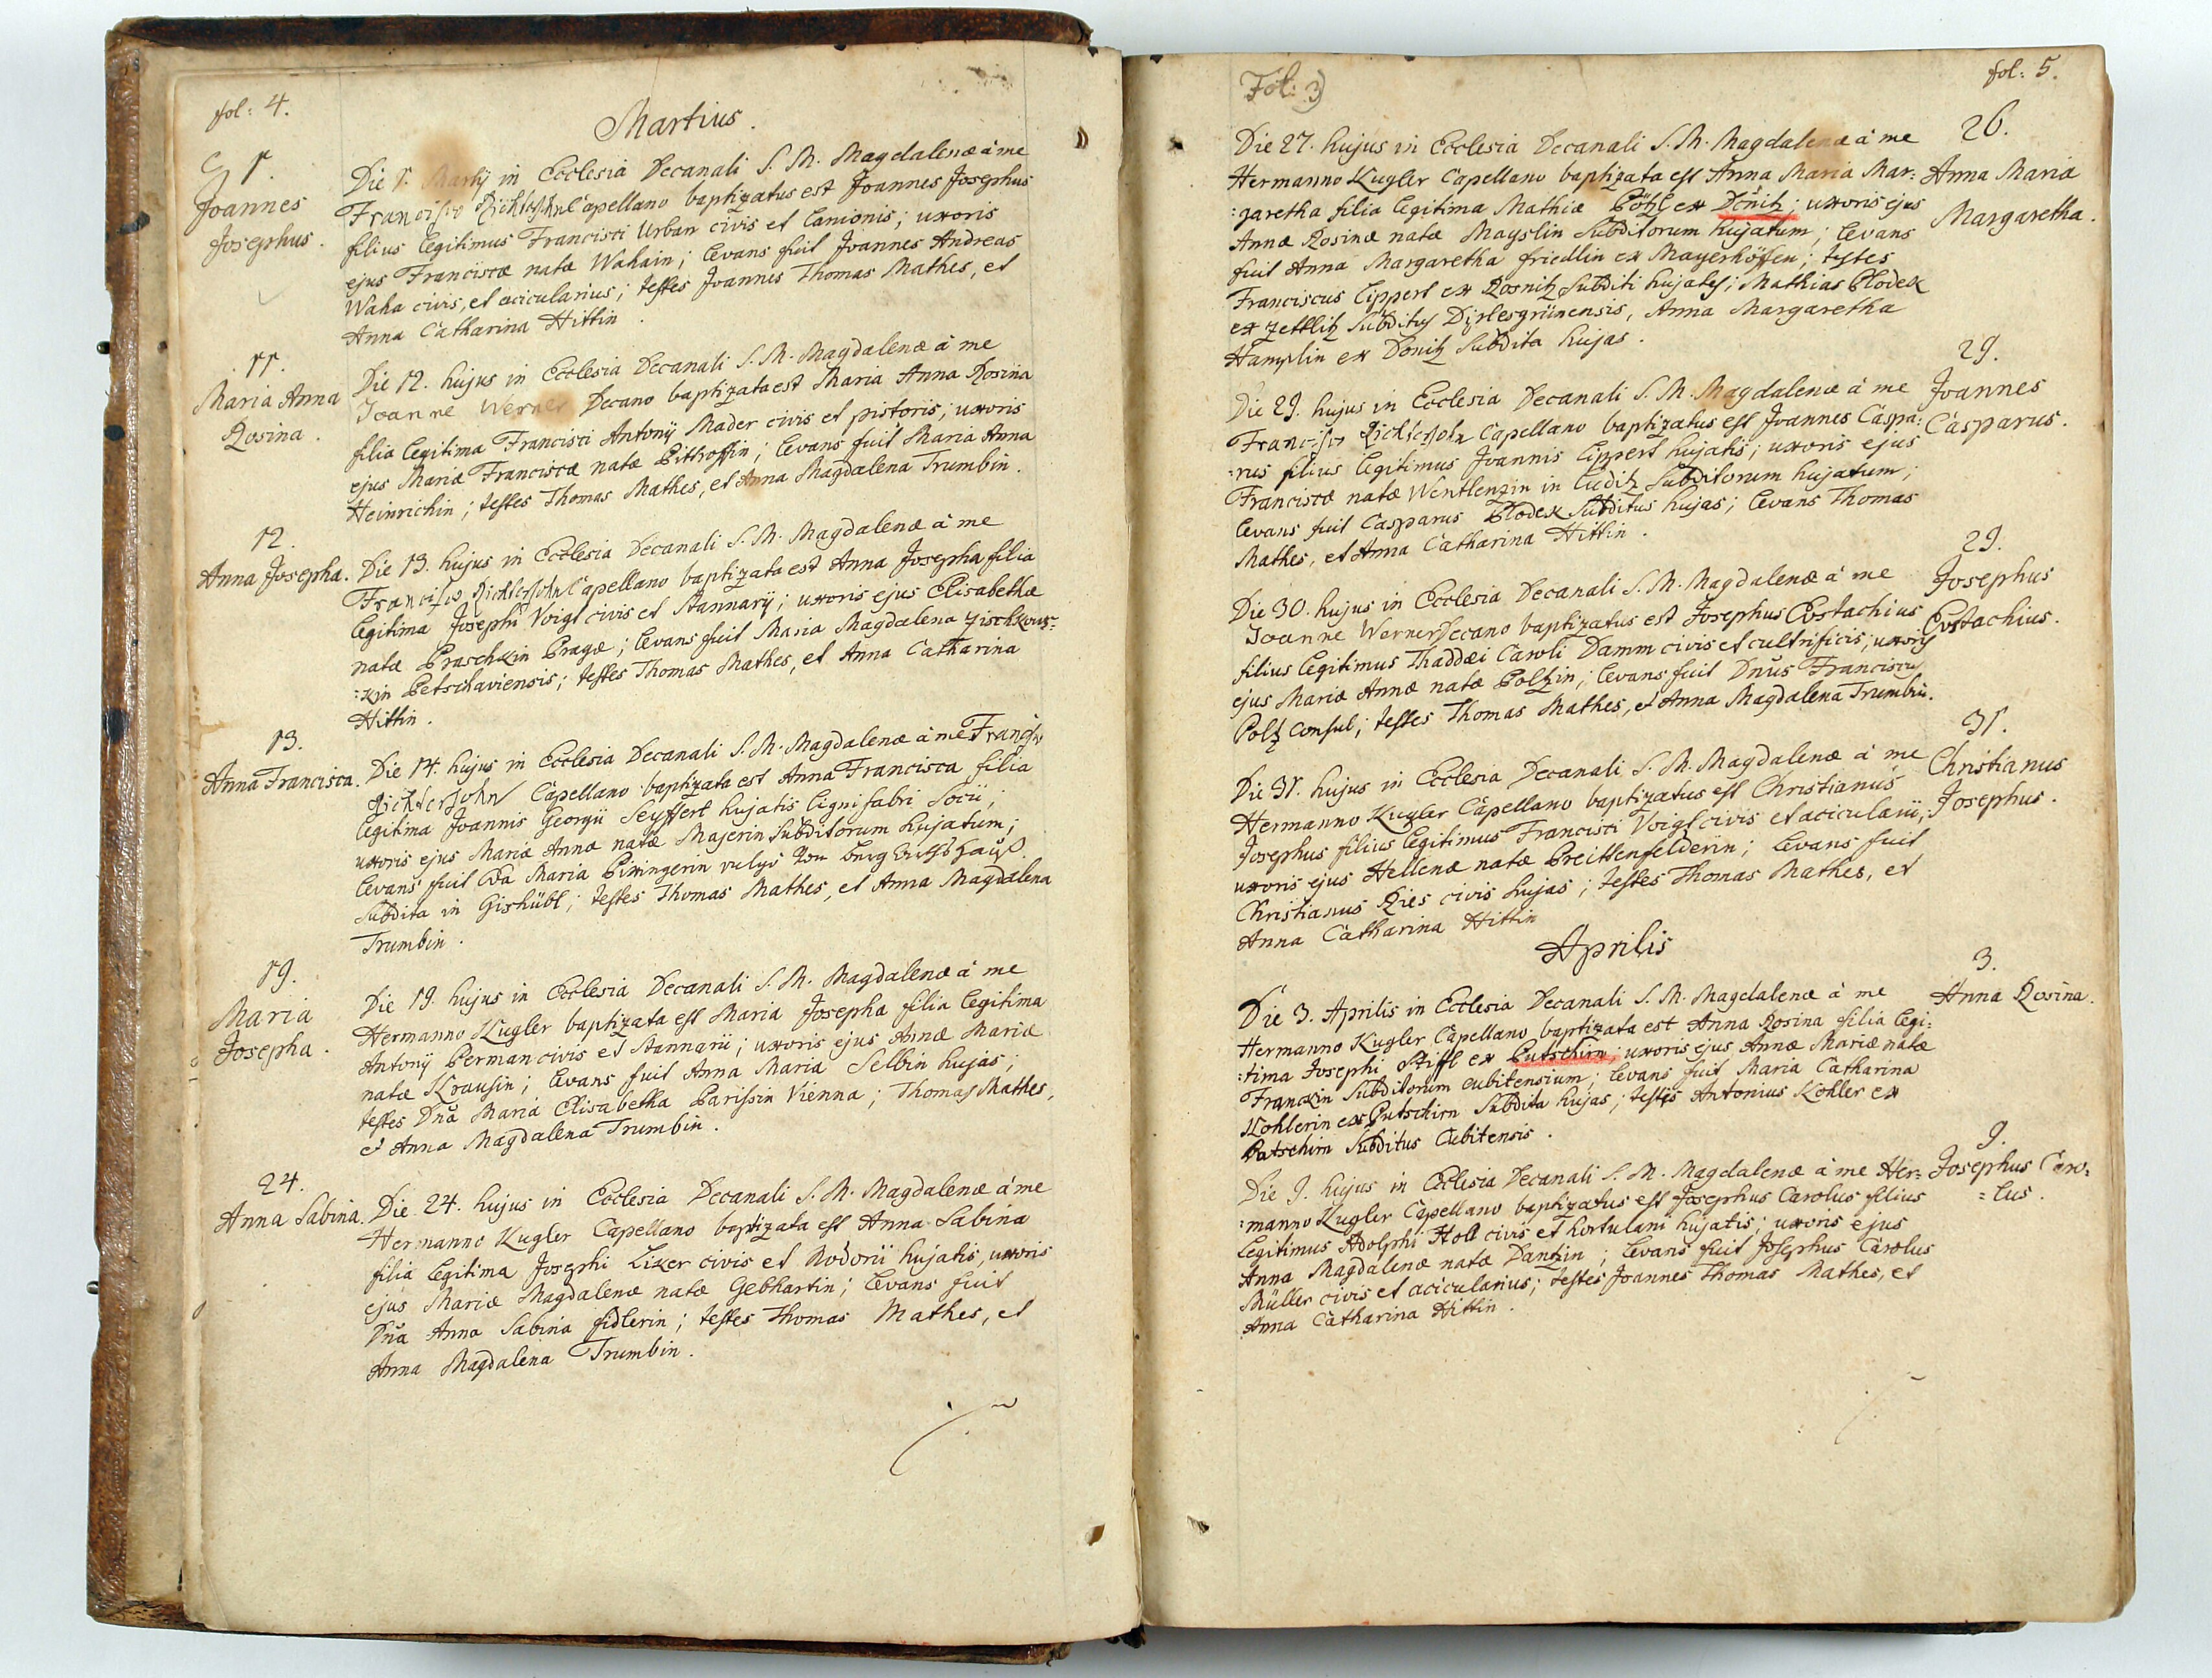 fol: 4.
Martius.
1.
Joannes
Josephus.
Die 1. Martij in Ecclesia Decanali S. M. Magdalenæ à me
Francisco Richterjohn Capellano baptizatus est Joannes Josephus
filius legitimus Francisci Urban civis et Lanionis; uxoris
ejus Franciscæ natæ Wahain; levans fuit Joannes Andreas
Waha civis, et acicularius; testes Joannes Thomas Mathes, et
Anna Catharina Hittin.
11.
Maria Anna
Rosina.
Die 12. hujus in Ecclesia Decanali S. M. Magdalenæ à me
Joanne Werner Decano baptizata est Maria Anna Rosina
filia legitima Francisci Antonij Mader civis et pistoris; uxoris
ejus Mariæ Franciscæ natæ Pittroffin; levans fuit Maria Anna
Heinrichin; testes Thomas Mathes, et Anna Magdalena Trumbin.
12.
Anna Josepha.
Die 13. hujus in Ecclesia Decanali S. M. Magdalenæ à me
Francisco Richterjohn Capellano baptizata est Anna Josepha filia
legitima Josephi Voigt civis et stannarij; uxoris ejus Elisabethæ
natæ Praschkin Pragæ; levans fuit Maria Magdalena
:kin Petschaviensis; testes Thomas Mathes, et Anna Catharina
Hittin.
13.
Anna Francisca.
Die 14. hujus in Ecclesia Decanali S. M. Magdalenæ à me Francisco
Richterjohn Capellano baptizata est Anna Francisca filia
legitima Joannis Georgii Seyffert hujatis lignifabri Socii;
uxoris ejus Mariæ Annæ natæ Majerin Subditorum hujatum;
levans fuit Eva Maria Piringerin vulgo
Subdita in Gishübl; testes Thomas Mathes, et Anna Magdalena
Trumbin.
19.
Maria
Josepha.
Die 19. hujus in Ecclesia Decanali S. M. Magdalenæ à me
Hermanno Kugler baptizata est Maria Josepha filia legitima
Antonij Perman civis et stannarii; uxoris ejus Annæ Mariæ
natæ Krausin; levans fuit Anna Maria Selbin hujas;
testes Dna Maria Elisabetha Parissin Vienna; Thomas Mathes,
et Anna Magdalena Trumbin.
24.
Anna Sabina.
Die 24. hujus in Ecclesia Decanali S. M. Magdalenæ à me
Hermanno Kugler Capellano baptizata est Anna Sabina
filia legitima Josephi Lixer civis et hujatis, uxoris
ejus Mariæ Magdalenæ natæ Gebhartin; levans fuit
Dna Anna Sabina fidlerin; testes Thomas Mathes, et
Anna Magdalena Trumbin.
Fol: 3)
fol: 5.
26.
Anna Maria
Margaretha.
Die 27. hujus in Ecclesia Decanali S. M. Magdalenæ à me
Hermanno Kugler Capellano baptizata est Anna Maria Mar:
:garetha filia legitima Mathiæ Pötzl ex Dönitz; uxoris ejus
Annæ Rosinæ natæ Mayslin Subditorum hujatum; levans
fuit Anna Margaretha friedlin ex Mayerhöffen; testes
Franciscus Lippert ex Rosnitz Subditi hujates; Mathias Plodek
ex Zettlitz Subditus Dirlesgrünensis, Anna Margaretha
Hamplin ex Donitz Subdita hujas.
29.
Joannes
Casparus.
Die 29. hujus in Ecclesia Decanali S. M. Magdalenæ à me
Francisco Richterjohn Capellano baptizatus est Joannes Caspa:
:rus filius legitimus Joannis Lippert hujatis; uxoris ejus
Franciscæ natæ Wentlenzin in Luditz Subditorum hujatum;
levans fuit Casparus Plodek Subditus hujas; levans Thomas
Mathes, et Anna Catharina Hittin.
29.
Josephus
Eustachius.
Die 30. hujus in Ecclesia Decanali S. M. Magdalenæ à me
Joanne Werner Decano baptizatus est Josephus Eustachius
filius legitimus Thaddæi Caroli Damm civis et cultrificis; uxoris
ejus Mariæ Annæ natæ Poltzin; levans fuit Dnus Franciscus
Poltz Consul; testes Thomas Mathes, et Anna Magdalena Trumbin.
31.
Christianus
Josephus.
Die 31. hujus in Ecclesia Decanali S. M. Magdalenæ à me
Hermanno Kugler Capellano baptizatus est Christianus
Josephus filius legitimus Francisci Voigt civis et acicularii;
uxoris ejus Hellenæ natæ Breittenfelderin; levans fuit
Christianus Ries civis hujas; testes Thomas Mathes, et
Anna Catharina Hittin
Aprilis
3.
Anna Rosina.
Die 3. Aprilis in Ecclesia Decanali S. M. Magdalenæ à me
Hermanno Kugler Capellano baptizata est Anna Rosina filia legi:
:tima Josephi Stiffl ex Putschirn; uxoris ejus Annæ Mariæ natæ
Franckin Subditorum cubitensium; levans fuit Maria Catharina
Kohlerin ex Putschirn Subdita hujas; testes Antonius Kohler ex
Putschirn Subditus Cubitensis.
9.
Josephus Caro:
:lus.
Die 9. hujus in Ecclesia Decanali S. M. Magdalenæ à me Her:
:manno Kugler Capellano baptizatus est Josephus Carolus filius
legitimus Adolphi Holl civis et hortulani hujatis; uxoris ejus
Anna Magdalenæ natæ Dantzin; levans fuit Josephus Carolus
Müller civis et acicularius; testes Joannes Thomas Mathes, et
Anna Catharina Hittin.